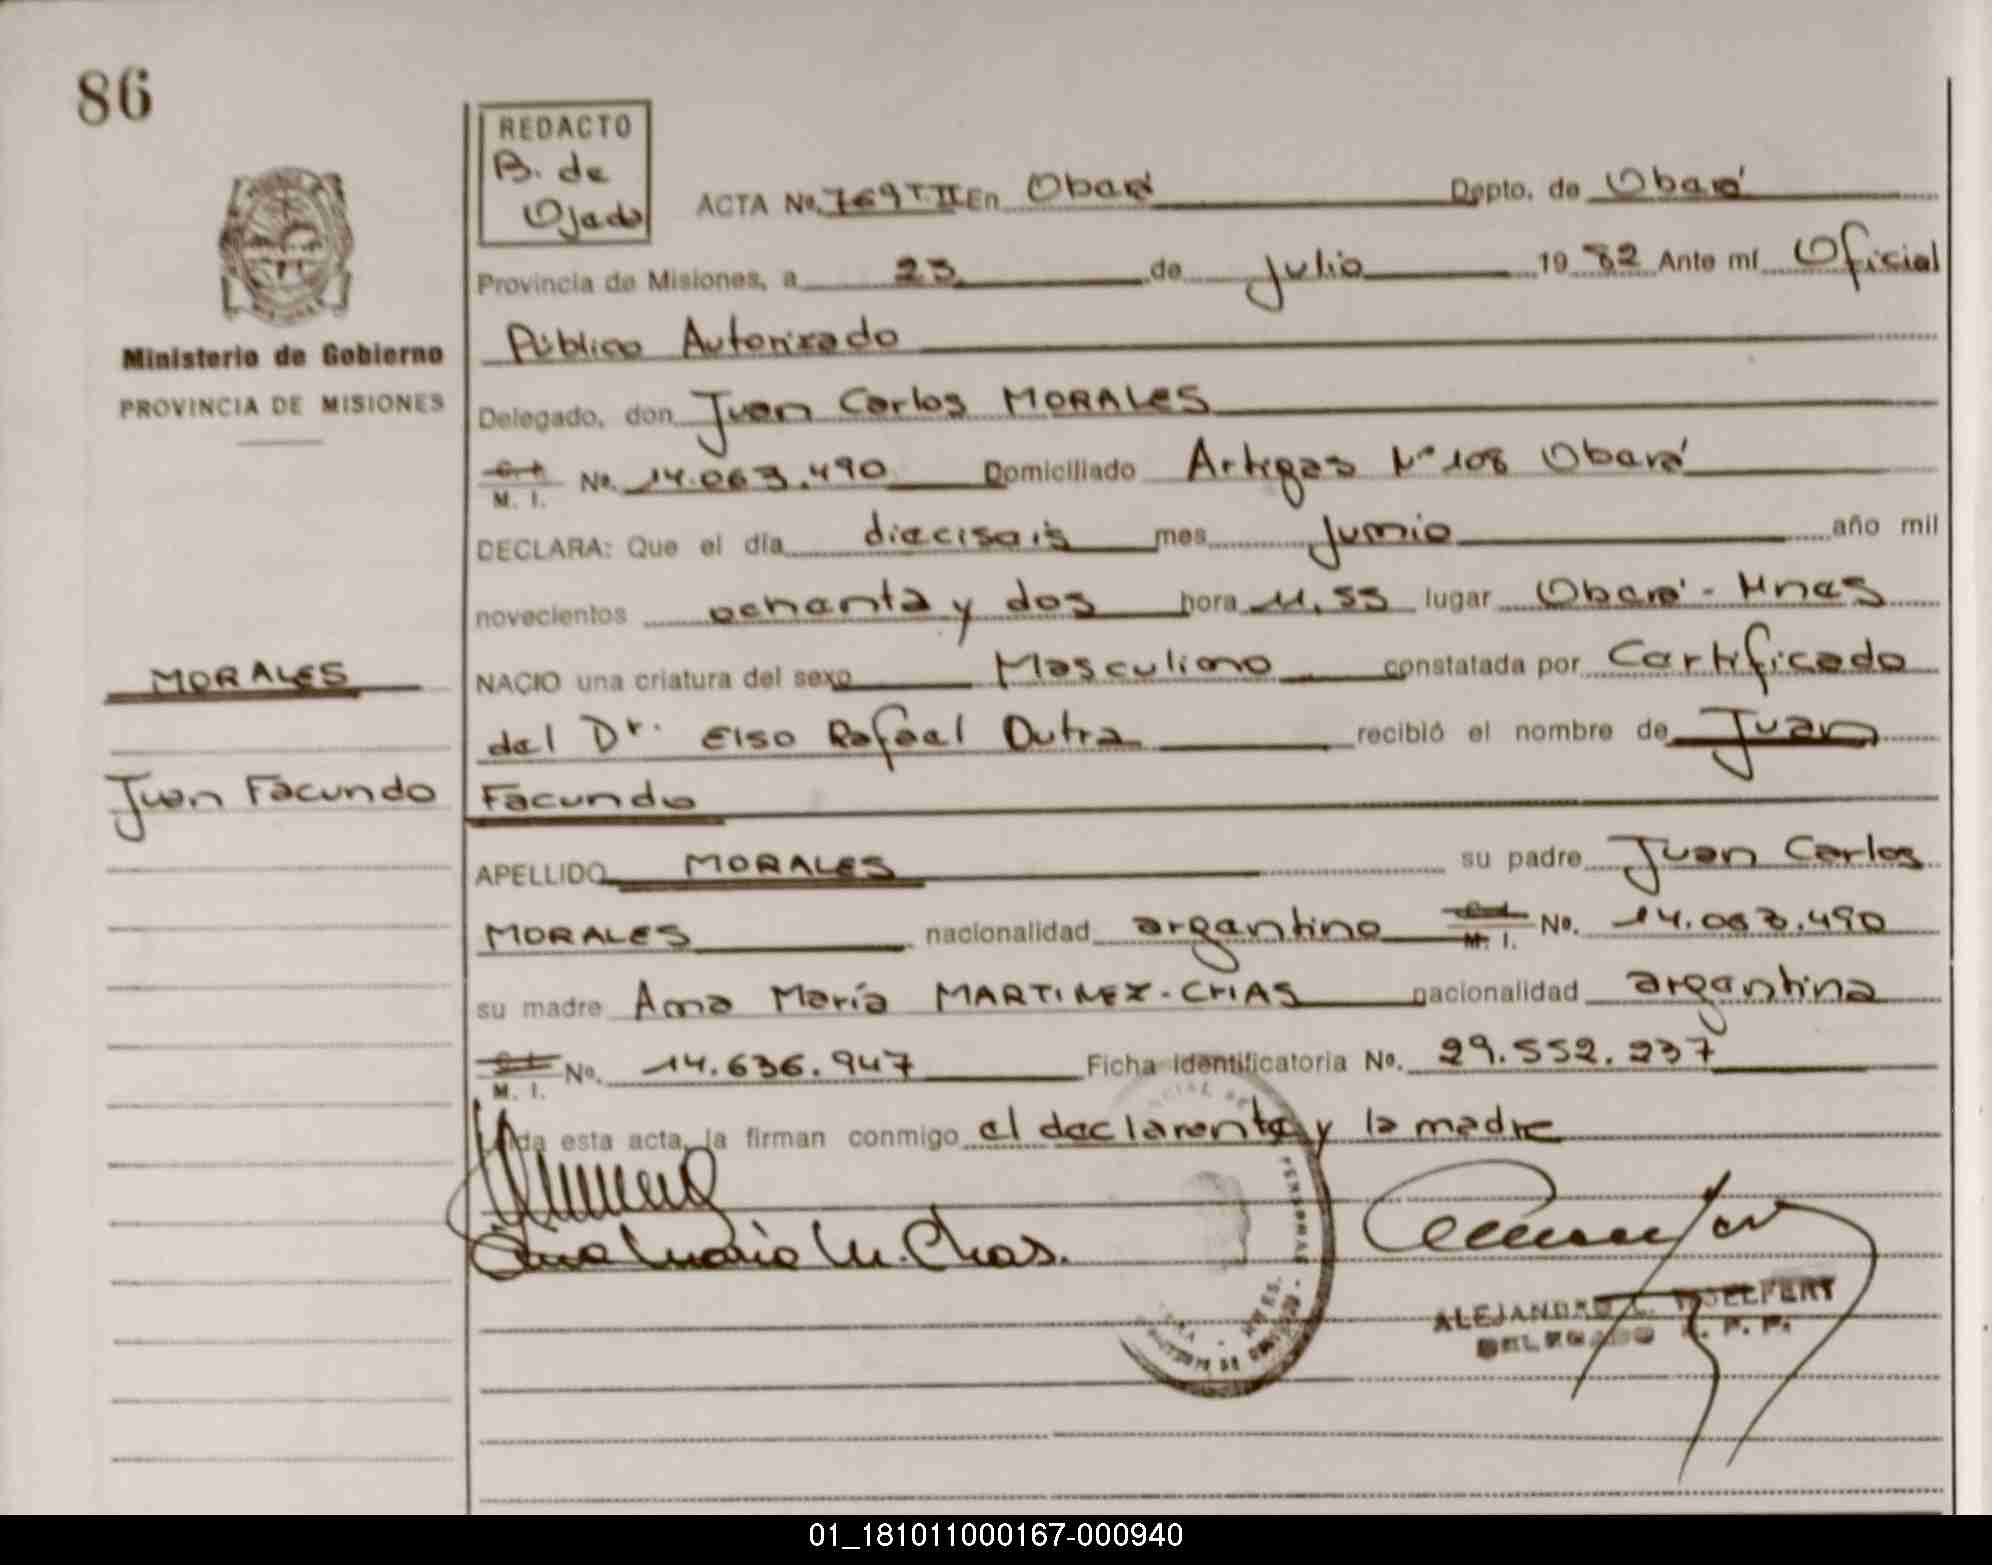 86
REDACTO
B. de
Ojado
ACTA No. 769 T. II En Oberá Depto. de Oberá
Provincia de Misiones, a 23 de julio 19 82 Ante mí Oficial
Público Autorizado
Delegado, don Juan Carlos MORALES
C. I. M. I. No. 14.063.490 Domiciliado Artigas Nº 108 Oberá
DECLARA: Que el día dieciseis mes junio año mil
novecientos ochenta y dos hora 11,55 lugar Oberá - Mnes
NACIO una criatura del sexo Masculino constatada por Certificado
del Dr. Elso Rafael Dutra recibió el nombre de Juan
Facundo
APELLIDO MORALES su padre Juan Carlos
MORALES nacionalidad argentino C. I. M. I. No. 14.063.490
su madre Ana María MARTINEZ-CHAS nacionalidad argentina
C. I. M. I. No. 14.636.947 Ficha Identificatoria No. 29.552.237
da esta acta, la firman conmigo el declarante y la madre
Ana Maria M. Chas.
PERSONAS
ALEJANDRO
DELEGADO R. P. P.
Ministerio de Gobierno
PROVINCIA DE MISIONES
MORALES
Juan Facundo
01_181011000167-000940